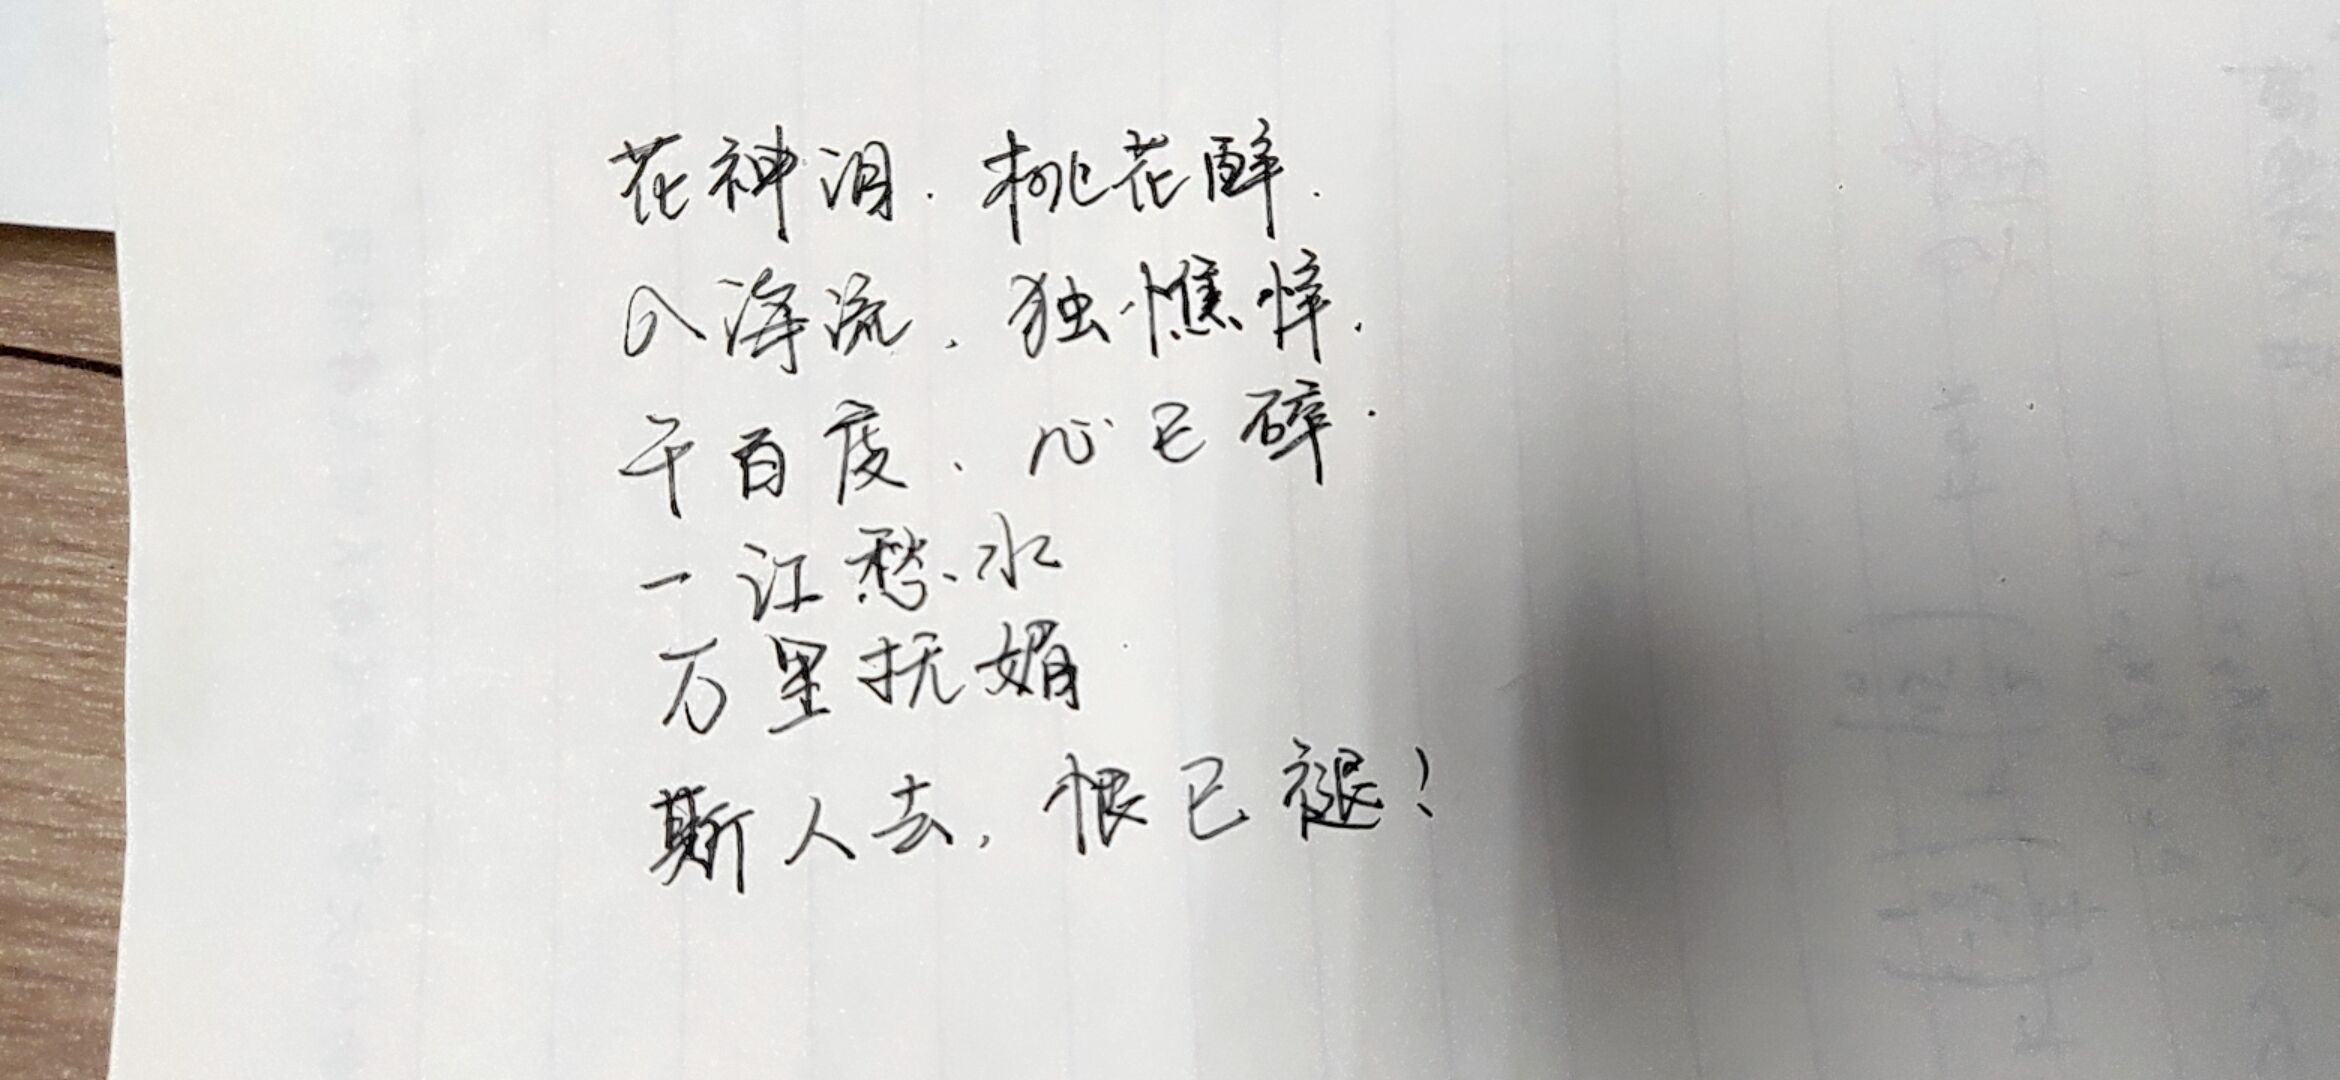 花神泪.桃花醉.
入海流.独憔悴.
千百度.心已碎.
一江愁水
万里抚媚
斯人去,恨已褪!